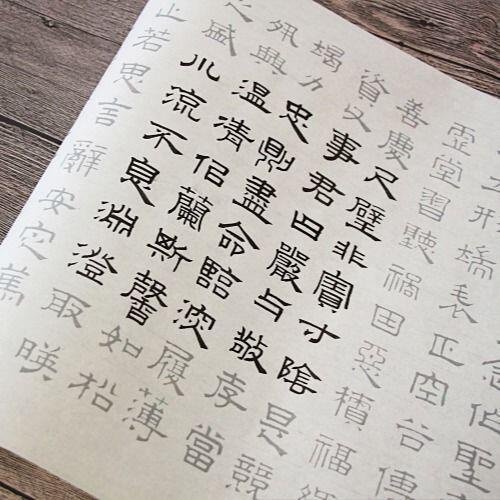 念作聖
形端表正空谷傳
虛堂習聽禍因惡積福緣
善慶尺璧非寶寸陰是競
資父事君曰嚴与敬孝當
竭力忠則盡命臨深履薄
夙興溫凊似蘭斯馨如松
之盛川流不息淵澄取映
止若思言辭安定篤